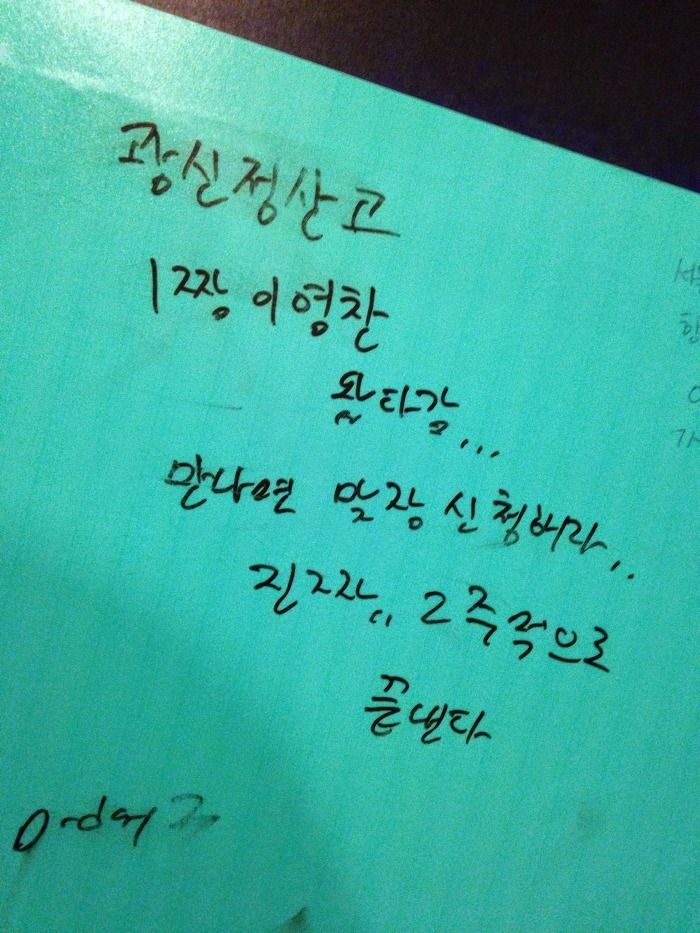 광신정산고
1짱 이영찬
왔타감...
만나면 맞장 신청해라..
진짜.. 2주적으로
끝낸다